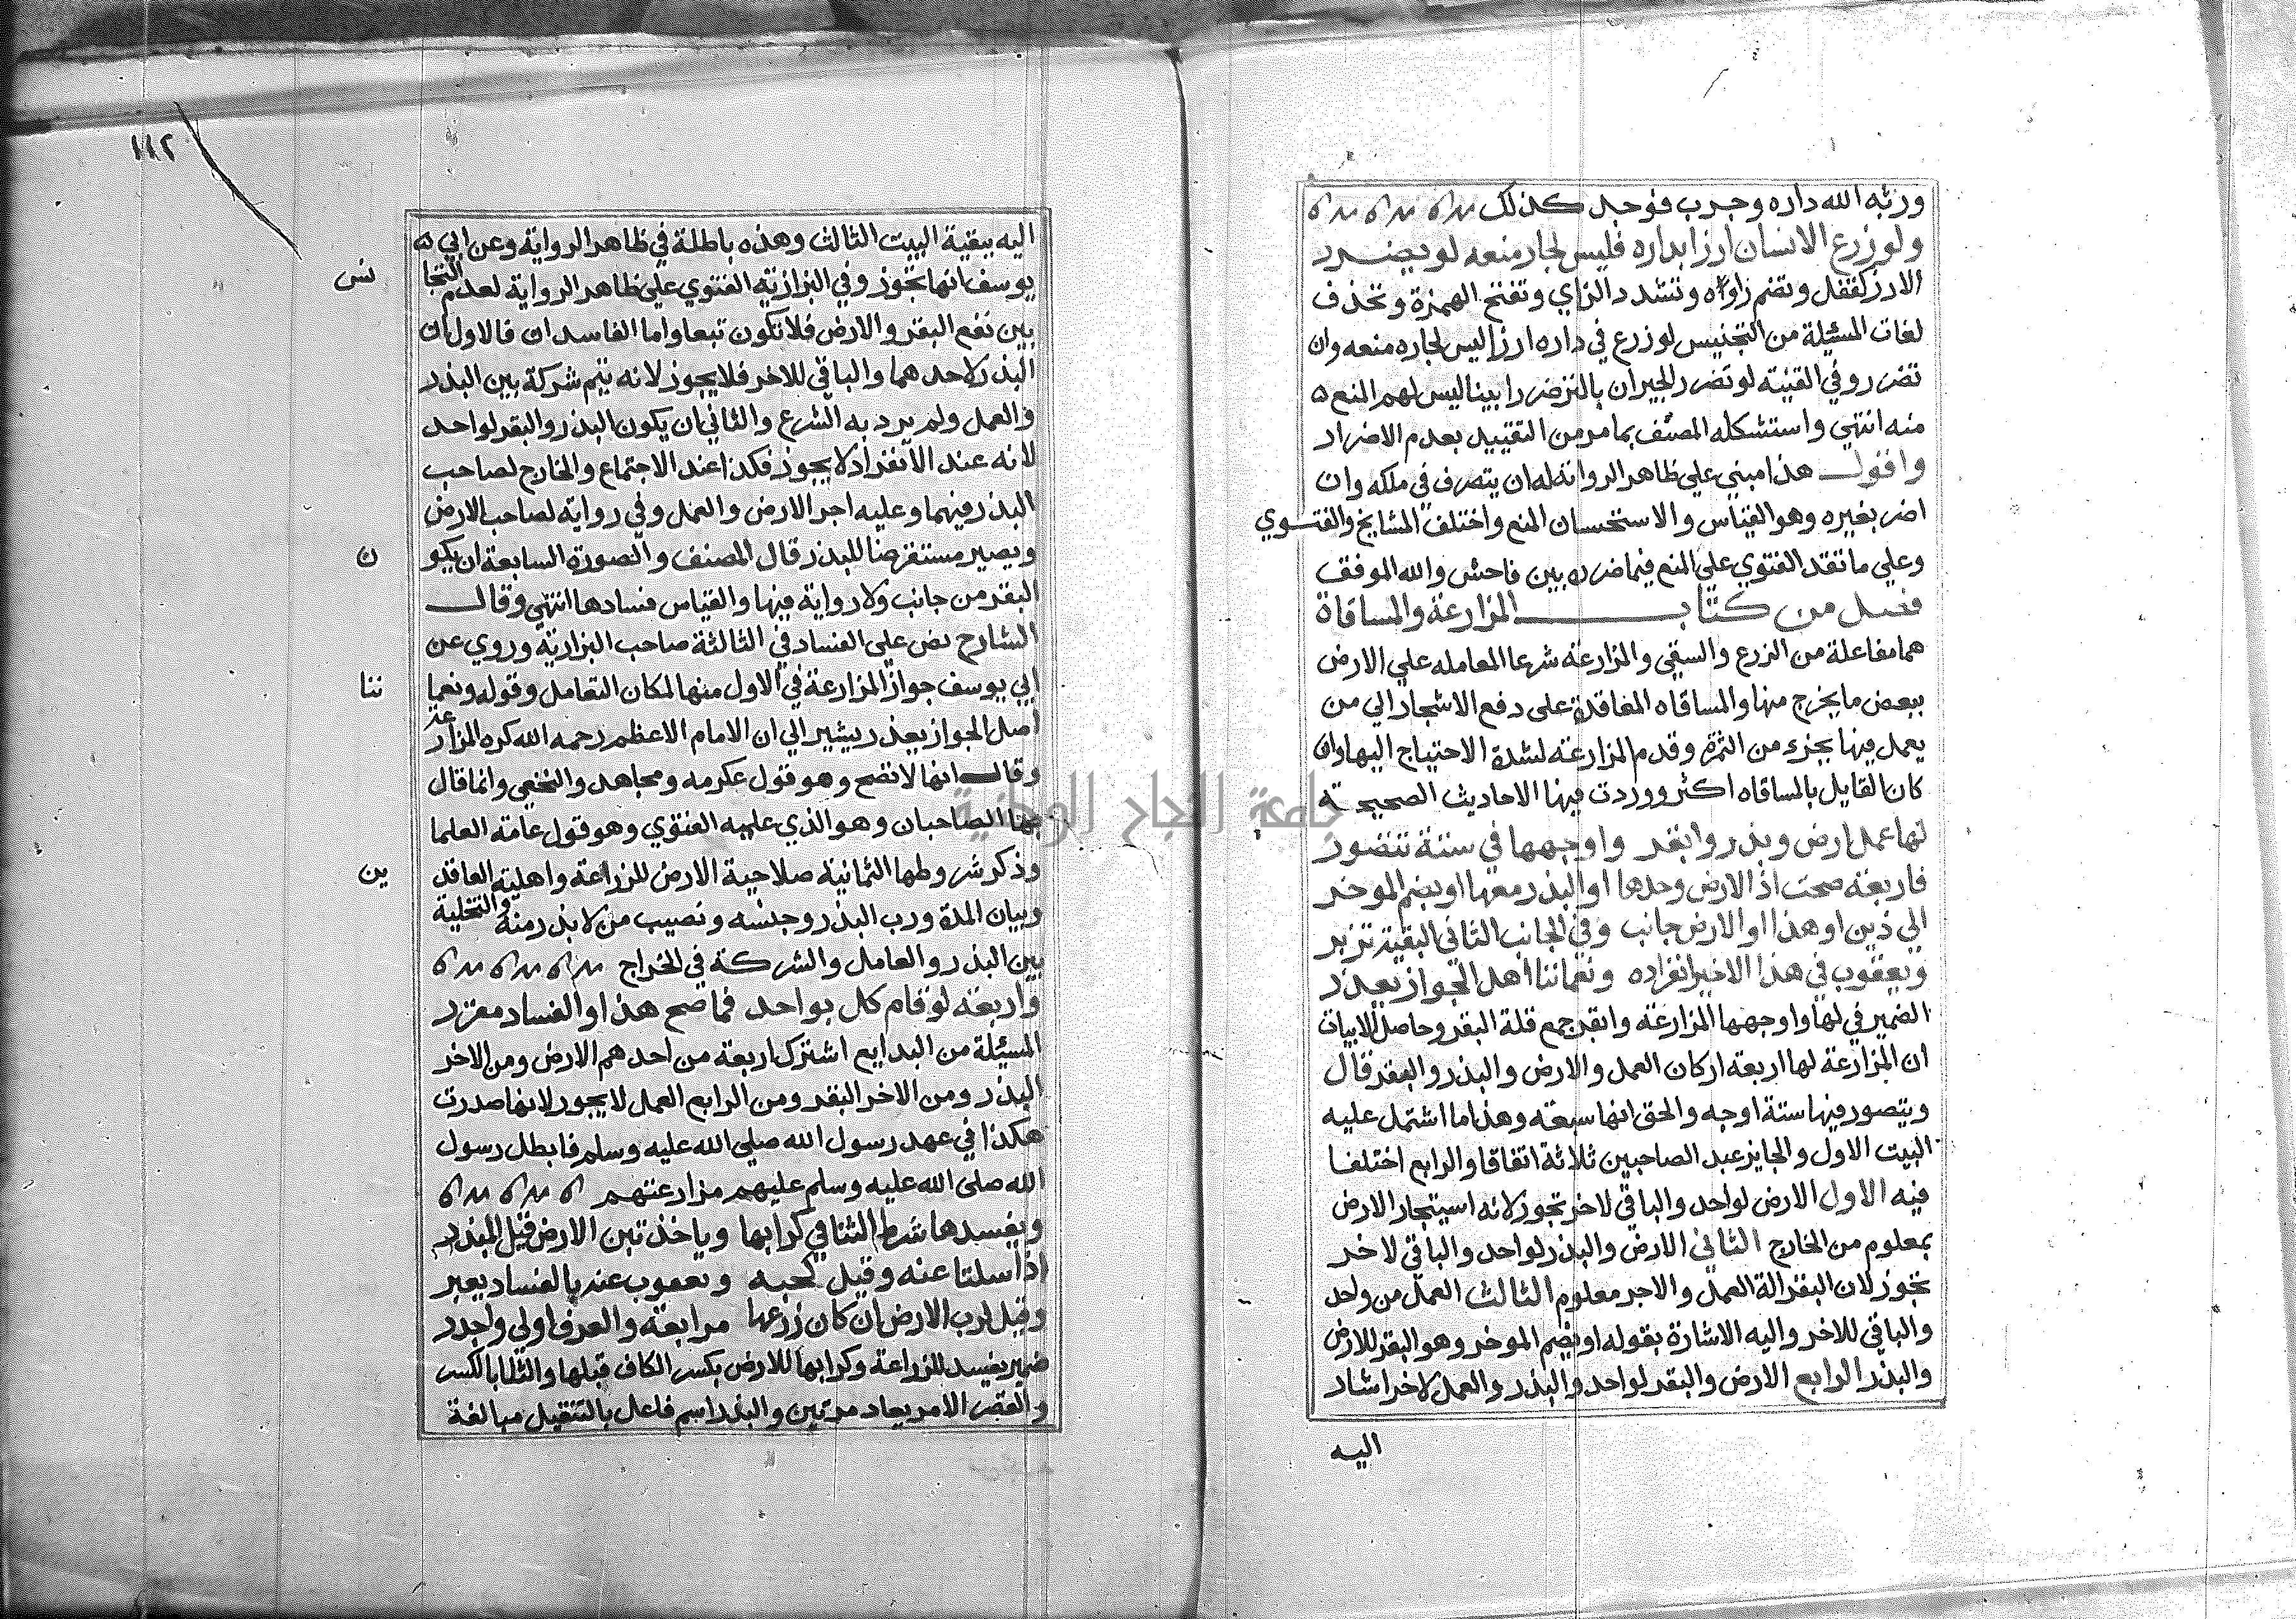 ورثه الله داره وجرب فوجد كذلك
ولو زرع الانسان ارزا بداره فليس لجار منعه لو يضرر
الارز كقفل وتضم زاؤه وتشدد الزاي وتفتح الهمزة وتحذف
لغات المسئلة من التجنيس لو زرع في داره ارزا ليس لجاره منعه وان
تضرر وفي القنية لو تضرر الجيران بالنز ضررا بينا ليس لهم المنع
منه انتهي واستشكله المصنف بما مر من التقييد بعدم الاضرار
واقول هذا مبني علي ظاهر الرواية له ان يتصرف في ملكه وان
اضر بغيره وهو القياس والاستحسان المنع واختلف المشايخ والفتوي
وعلي ما تقد الفتوي علي المنع فيما ضرره بين فاحش والله الموفق
فصل من كتاب المزارعة والمساقاة
هما مفاعلة من الزرع والسقي والمزارعة شرعا المعامله علي الارض
ببعض ما يخرج منها والمساقاه المعاقدة على دفع الاشجار الي من
يعمل فيها بجزء من الثمرة وقدم المزارعة لشدة الاحتياج اليها وان
كان القايل بالمساقاه اكثر ووردت فيها الاحاديث الصحيحة
لها عمل ارض وبذر وابقر واوجهها في ستة تتصور
فاربعة صحت اذ الارض وحدها او البذر معها او بضم الموخر
الي ذين او هذا او الارض جانب وفي الجانب الثاني البقية تزبر
ويعقوب في هذا الاخير انفراده ونعماننا اهل الجواز يعذر
الضمير في لها واوجهها المزارعة وابقر جمع قلة البقر وحاصل الابيات
ان المزارعة لها اربعة اركان العمل والارض والبذر والبقر قال
ويتصور فيها ستة اوجه والحق انها سبعة وهذا ما اشتمل عليه
البيت الاول والجايز عبد الصاحبين ثلاثة اتفاقا والرابع اختلفا
فيه الاول الارض لواحد والباقي لاخر تجوز لانه استيجار الارض
بمعلوم من الخارج الثاني الارض والبذر لواحد والباقي لاخر
تجوز لان البقر الة العمل والاجر معلوم الثالث العمل من واحد
والباقي للاخر واليه الاشارة بقوله او بضم الموخر وهو البقر للارض
والبذر الرابع الارض والبقر لواحد والبذر والعمل لاخر اشار
اليه
١١٢
اليه ببقية البيت الثالث وهذه باطلة في ظاهر الرواية وعن ابي
يوسف انها تجوز وفي البزازية الفتوي علي ظاهر الرواية لعدم التجا
نس
بين نفع البقر والارض فلا تكون تبعا واما الفاسدان فالاول ان
البذر لاحدهما والباقي للاخر فلا يجوز لانه يتم شركة بين البذر
والعمل ولم يرد به الشرع والثاني ان يكون البذر والبقر لواحد
لانه عند الانفراد لا يجوز فكذا عند الاجتماع والخارج لصاحب
البذر فيهما وعليه اجر الارض والعمل وفي رواية لصاحب الارض
ويصير مستقرضا للبذر قال المصنف والصورة السابعة ان يكو
ن
البقر من جانب ولا رواية فيها والقياس فسادها انتهي وقال
الشارح نص علي الفساد في الثالثة صاحب البزازية وروي عن
ابي يوسف جواز المزارعة في الاول منها لمكان التعامل وقوله ونعما
ننا
اصل الجواز يعذر يشير الي ان الامام الاعظم رحمه الله كره المزارعة
وقال انها لا تصح وهو قول عكرمه ومجاهد والنخعي وانما قال
بها الصاحبان وهو الذي عليه الفتوي وهو قول عامة العلما
وذكر شروطها الثمانية صلاحية الارض للزراعة واهلية العاقد
ين
وبيان المدة ورب البذر وجنسه ونصيب من لا بذر منه والتخلية
بين البذر والعامل والشركة في الخراج
واربعة لو قام كل بواحد فما صح هذا والفساد مقرر
المسئلة من البدايع اشترك اربعة من احدهم الارض ومن الاخر
البذر ومن الاخر البقر ومن الرابع العمل لا يجوز لانها صدرت
هكذا في عهد رسول الله صلي الله عليه وسلم فابطل رسول
الله صلى الله عليه وسلم عليهم مزارعتهم
ويفسدها شرط الثنا في كرابها وياخذ تبن الارض قيل المبذر
اذا سلتا عنه وقيل كحبه ويعقوب عنه بالفساد يعبر
وقيل لرب الارض ان كان زرعها مرابعة والعرف اولي واجدر
ضمير يفسد للزراعة وكرابها للارض بكسر الكاف قبلها والثنا بالكسر
والقصر الامر يعاد مرتين والبذر اسم فاعل بالتثقيل مبالغة
جامعة النجاح الوطنية